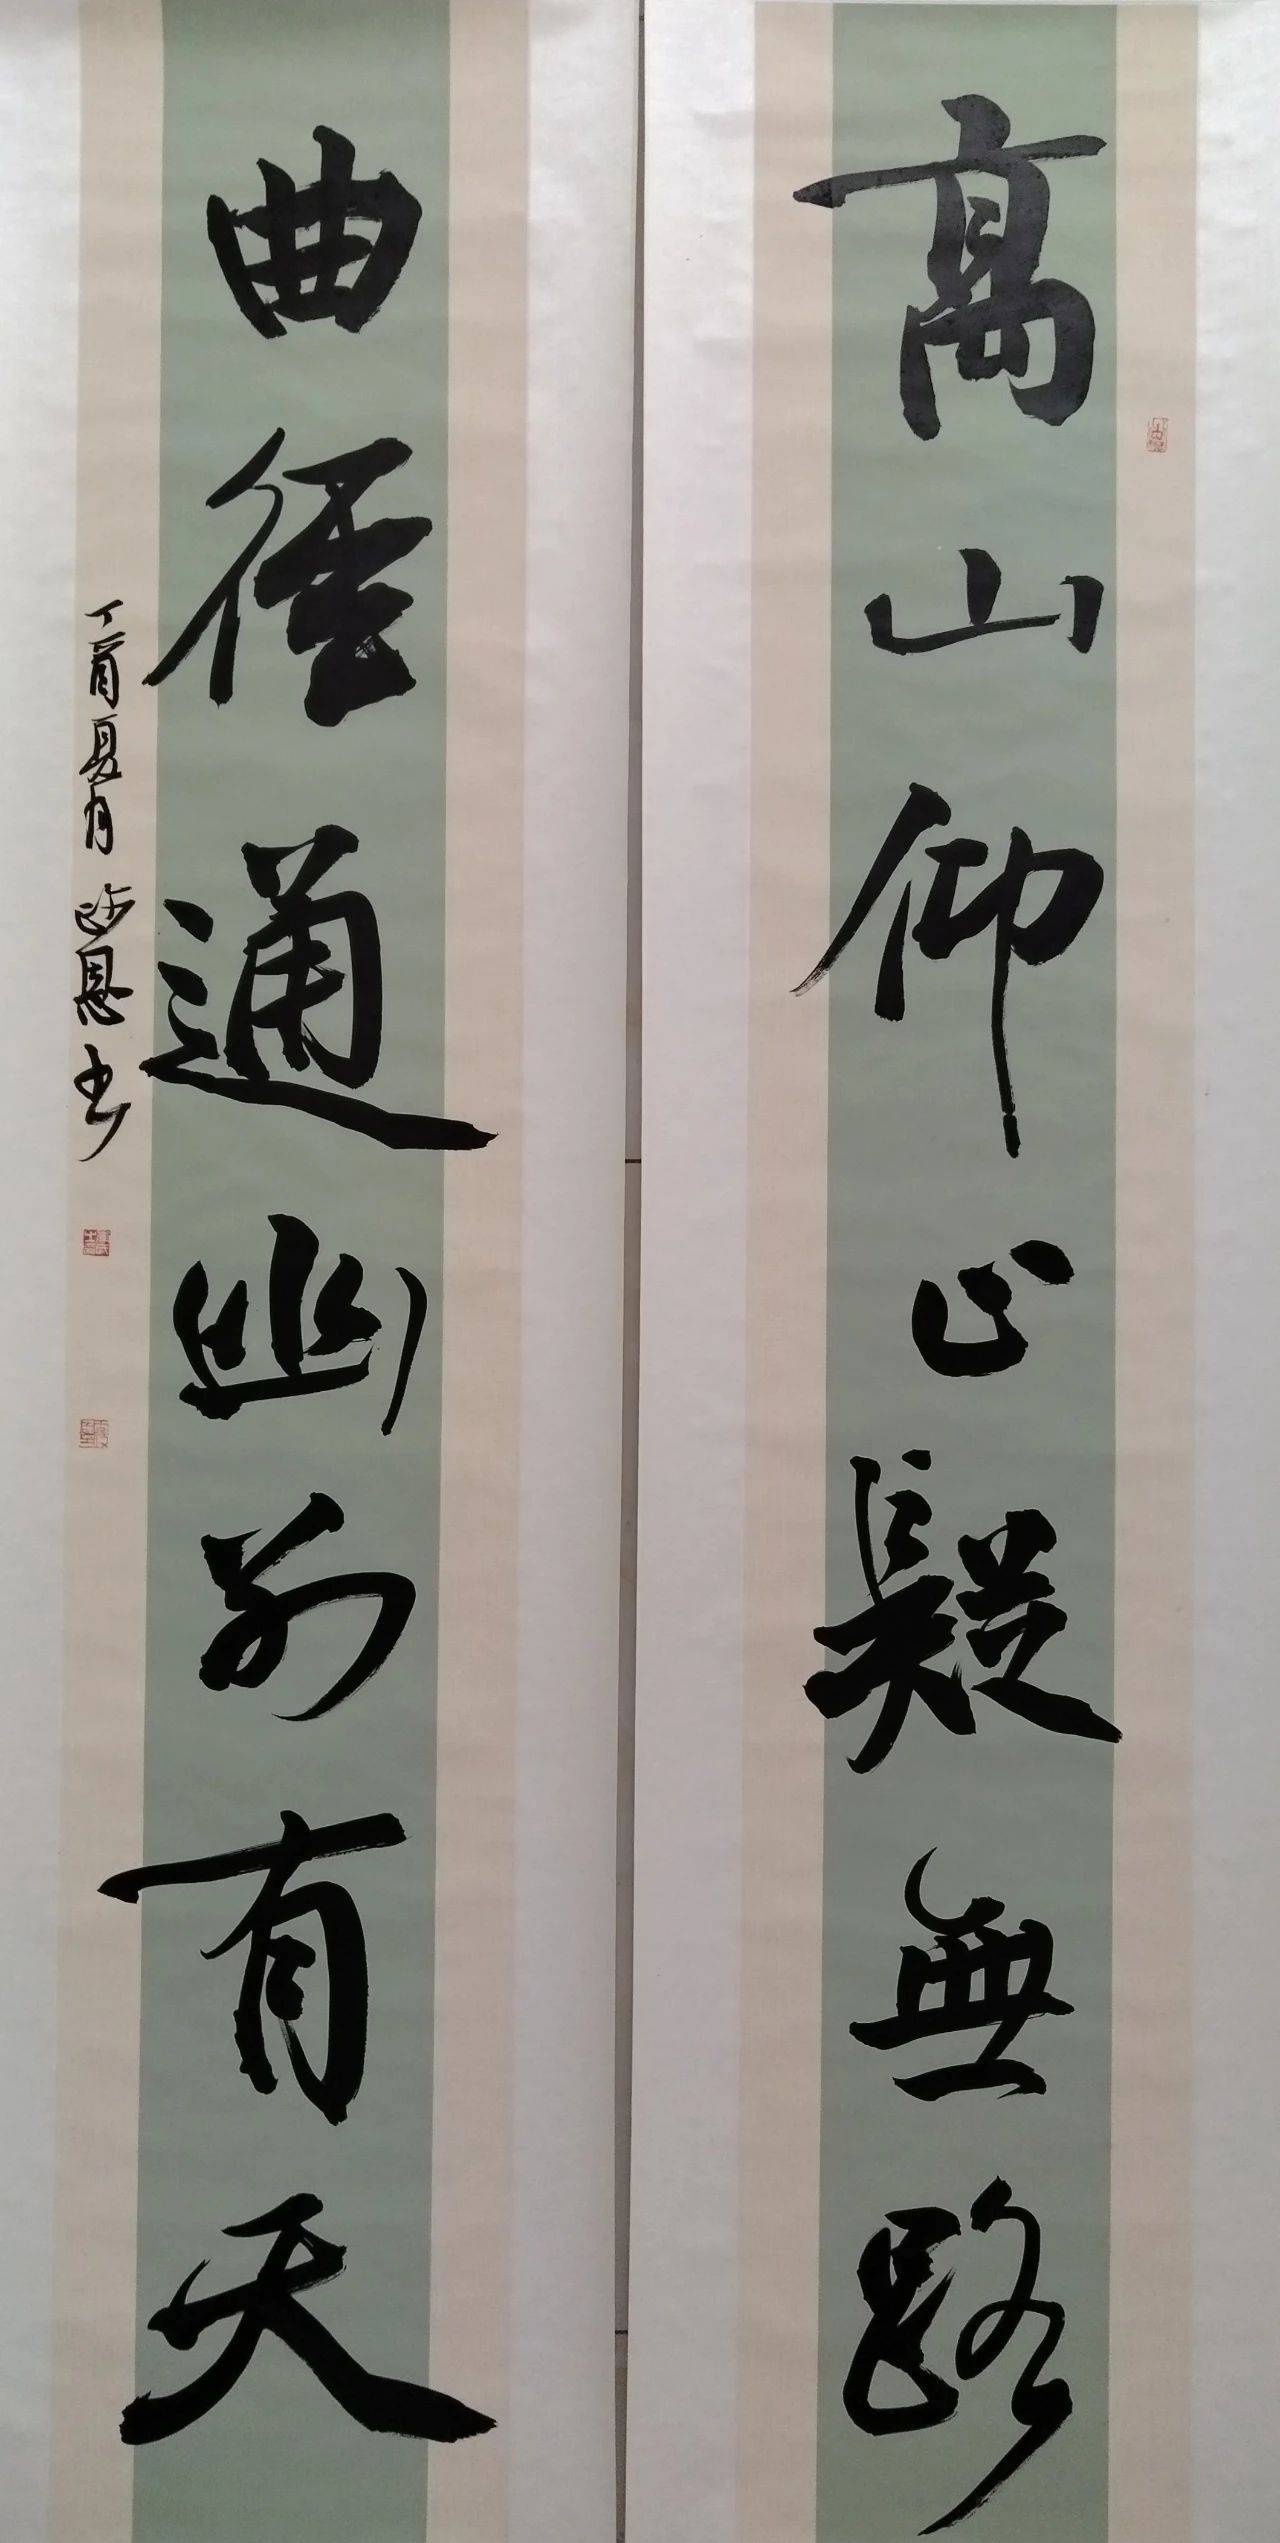 高山仰止疑無路
曲徑通幽別有天
丁酉夏月 沙恩书